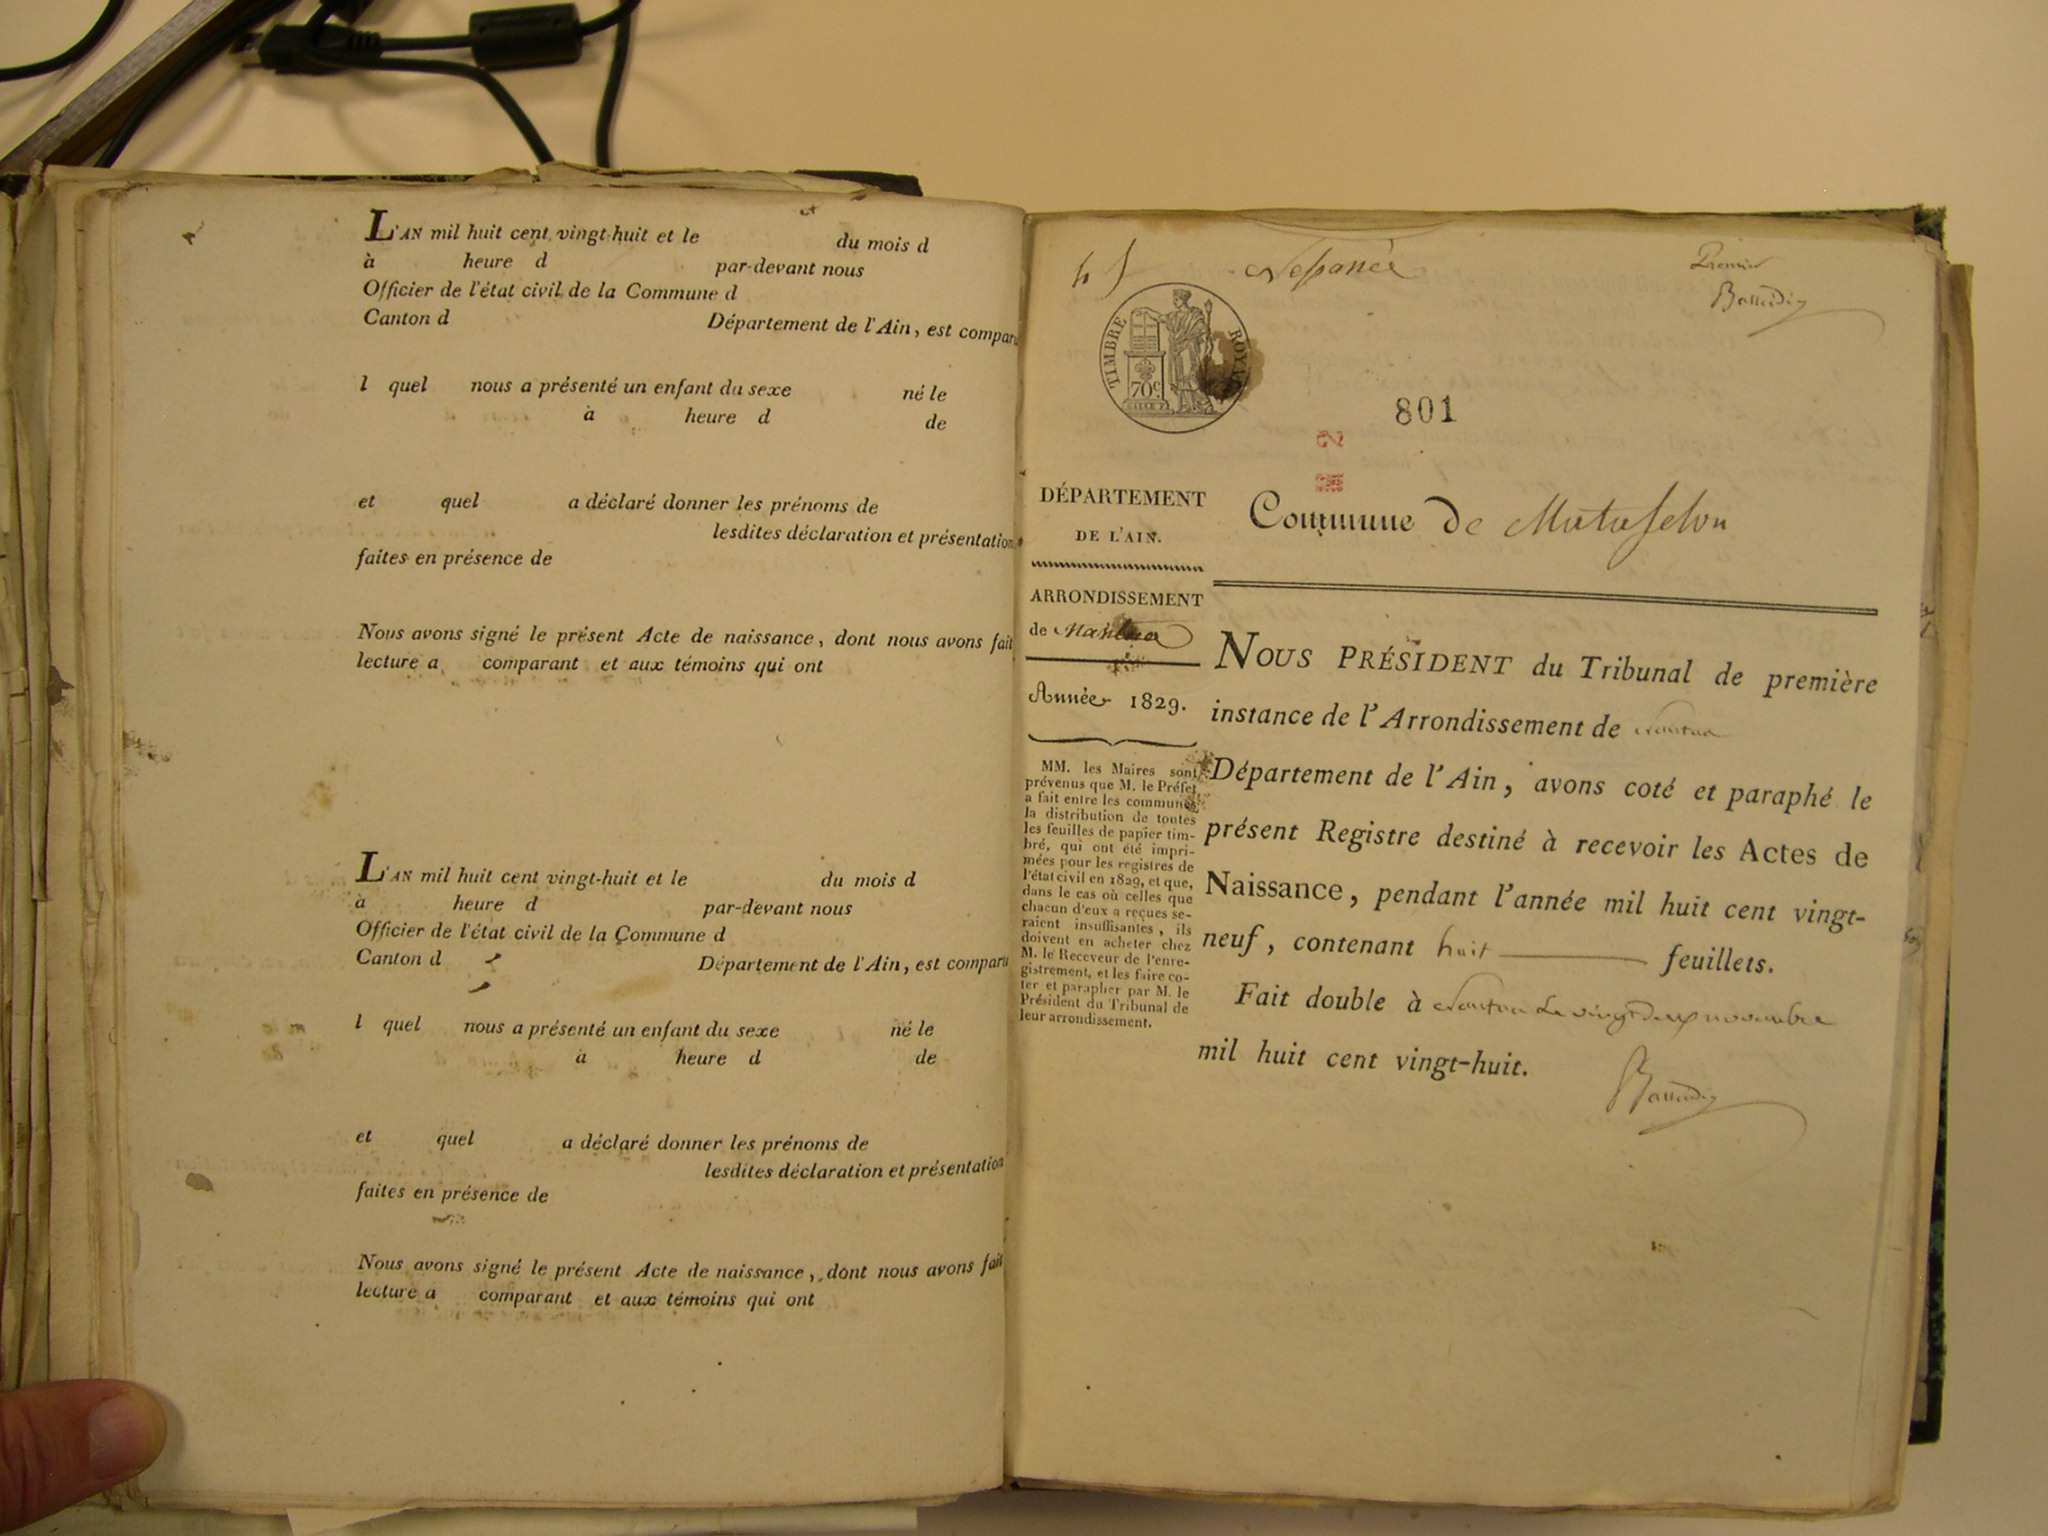 L'AN mil huit cent vingt-huit et le du mois d
à heure d par-devant nous
Officier de l'état civil de la Commune d
Canton d Département de l'Ain, est comparu
l quel nous a présenté un enfant du sexe né le
à heure d de
et quel a déclaré donner les prénoms de
lesdites déclaration et présentation
faites en présence de
Nous avons signé le présent Acte de naissance, dont nous avons fait
lecture a comparant et aux témoins qui ont
L'AN mil huit cent vingt-huit et le du mois d
à heure d par-devant nous
Officier de l'état civil de la Commune d
Canton d Département de l'Ain, est comparu
l quel nous a présenté un enfant du sexe né le
à heure d de
et quel a déclaré donner les prénoms de
lesdites déclaration et présentation
faites en présence de
Nous avons signé le présent Acte de naissance, dont nous avons fait
lecture a comparant et aux témoins qui ont
Premier
TIMBRE ROYAL
70c
801
DÉPARTEMENT
DE L'AIN.
ARRONDISSEMENT
de Nantua
Année 1829.
MM. les Maires sont
prévenus que M. le Préfet
a fait entre les communes
la distribution de toutes
les feuilles de papier tim-
bré, qui ont été impri-
mées pour les registres de
l'état civil en 1829, et que,
dans le cas où celles que
chacun d'eux a reçues se-
raient insuffisantes, ils
doivent en acheter chez
M. le Receveur de l'enre-
gistrement, et les faire co-
ter et parapher par M. le
Président du Tribunal de
leur arrondissement.
Commune de Matafelon
NOUS PRÉSIDENT du Tribunal de première
instance de l'Arrondissement de Nantua
Département de l'Ain, avons coté et paraphé le
présent Registre destiné à recevoir les Actes de
Naissance, pendant l'année mil huit cent vingt-
neuf, contenant huit feuillets.
Fait double à Nantua le vingt deux novembre
mil huit cent vingt-huit.